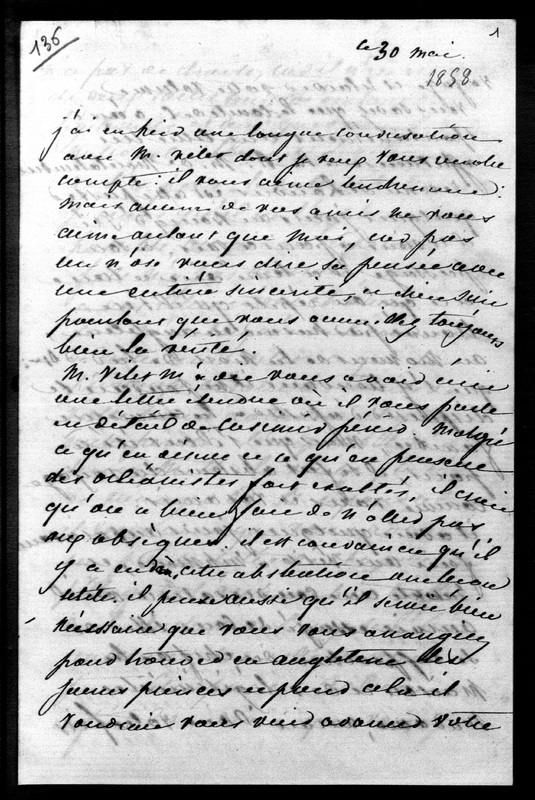 136
1
ce 30 mai
1858
j'ai eu hier une longue conversation
avec M. Vitet dont je veux vous rendre
compte: il vous aime tendrement:
mais aucun de vos amis ne vous
aime autant que moi, pas
un n'ose vous dire sa pensée avec
une entière sincérité, et dieu sait
pourtant que vous toujours
bien la vérité.
M. Vitet m'a dit vous avoir écrit
une lettre étendue où il vous parle
en détail de Casimir périer. Malgré
ce qu'en disent et ce qu'en pensent
des orléanistes fort exaltés, il croit
qu'on a bien fait de n'aller pas
aux obsèques: il est convaincu qu'il
y a eu dans cette abstention
utilité, il pense aussi qu'il serait bien
nécessaire que vous vous
pour en angleterre les
jeunes princes et pour cela il
voudrait vous voir avancer votre